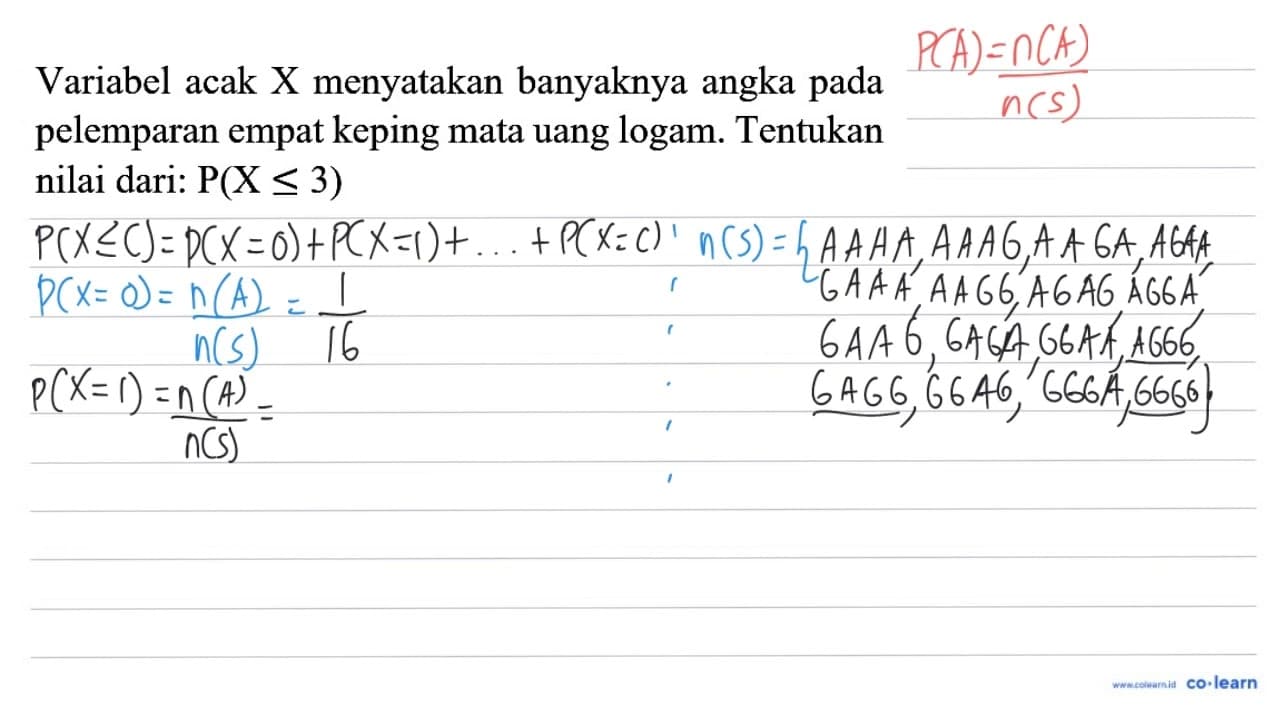 Variabel acak X menyatakan banyaknya angka pada
pelemparan empat keping mata uang logam. Tentukan
nilai dari: P(X ≤ 3)
P(A) = n(A)
n(S)
P(X≤C) = P(X=0) + P(X=1) + ... + P(X=C)
P(X=0) = n(A) = 1
n(S) 16
P(X=1) = n(A) =
n(S)
n(S) = { AAAA, AAAG, AAGA, AGAA
GAAA, AAGG, AGAG AGGA
GAAG, GAGA GGAA, AGGG,
GAGG, GGAG, GGGA, GGGG}
www.colearn.id co·learn